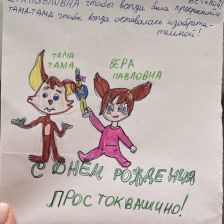 ПАВЛОВНА чтобы всегда была прекрасной
ТАМА-ТАМА чтобы всегда оставалась изобрета-
тельной!
ТАМА
ТАМА
ВЕРА
ПАВЛОВНА
С ДНЁМ РОЖДЕНИЯ
ПРОСТОКВАШИНО!